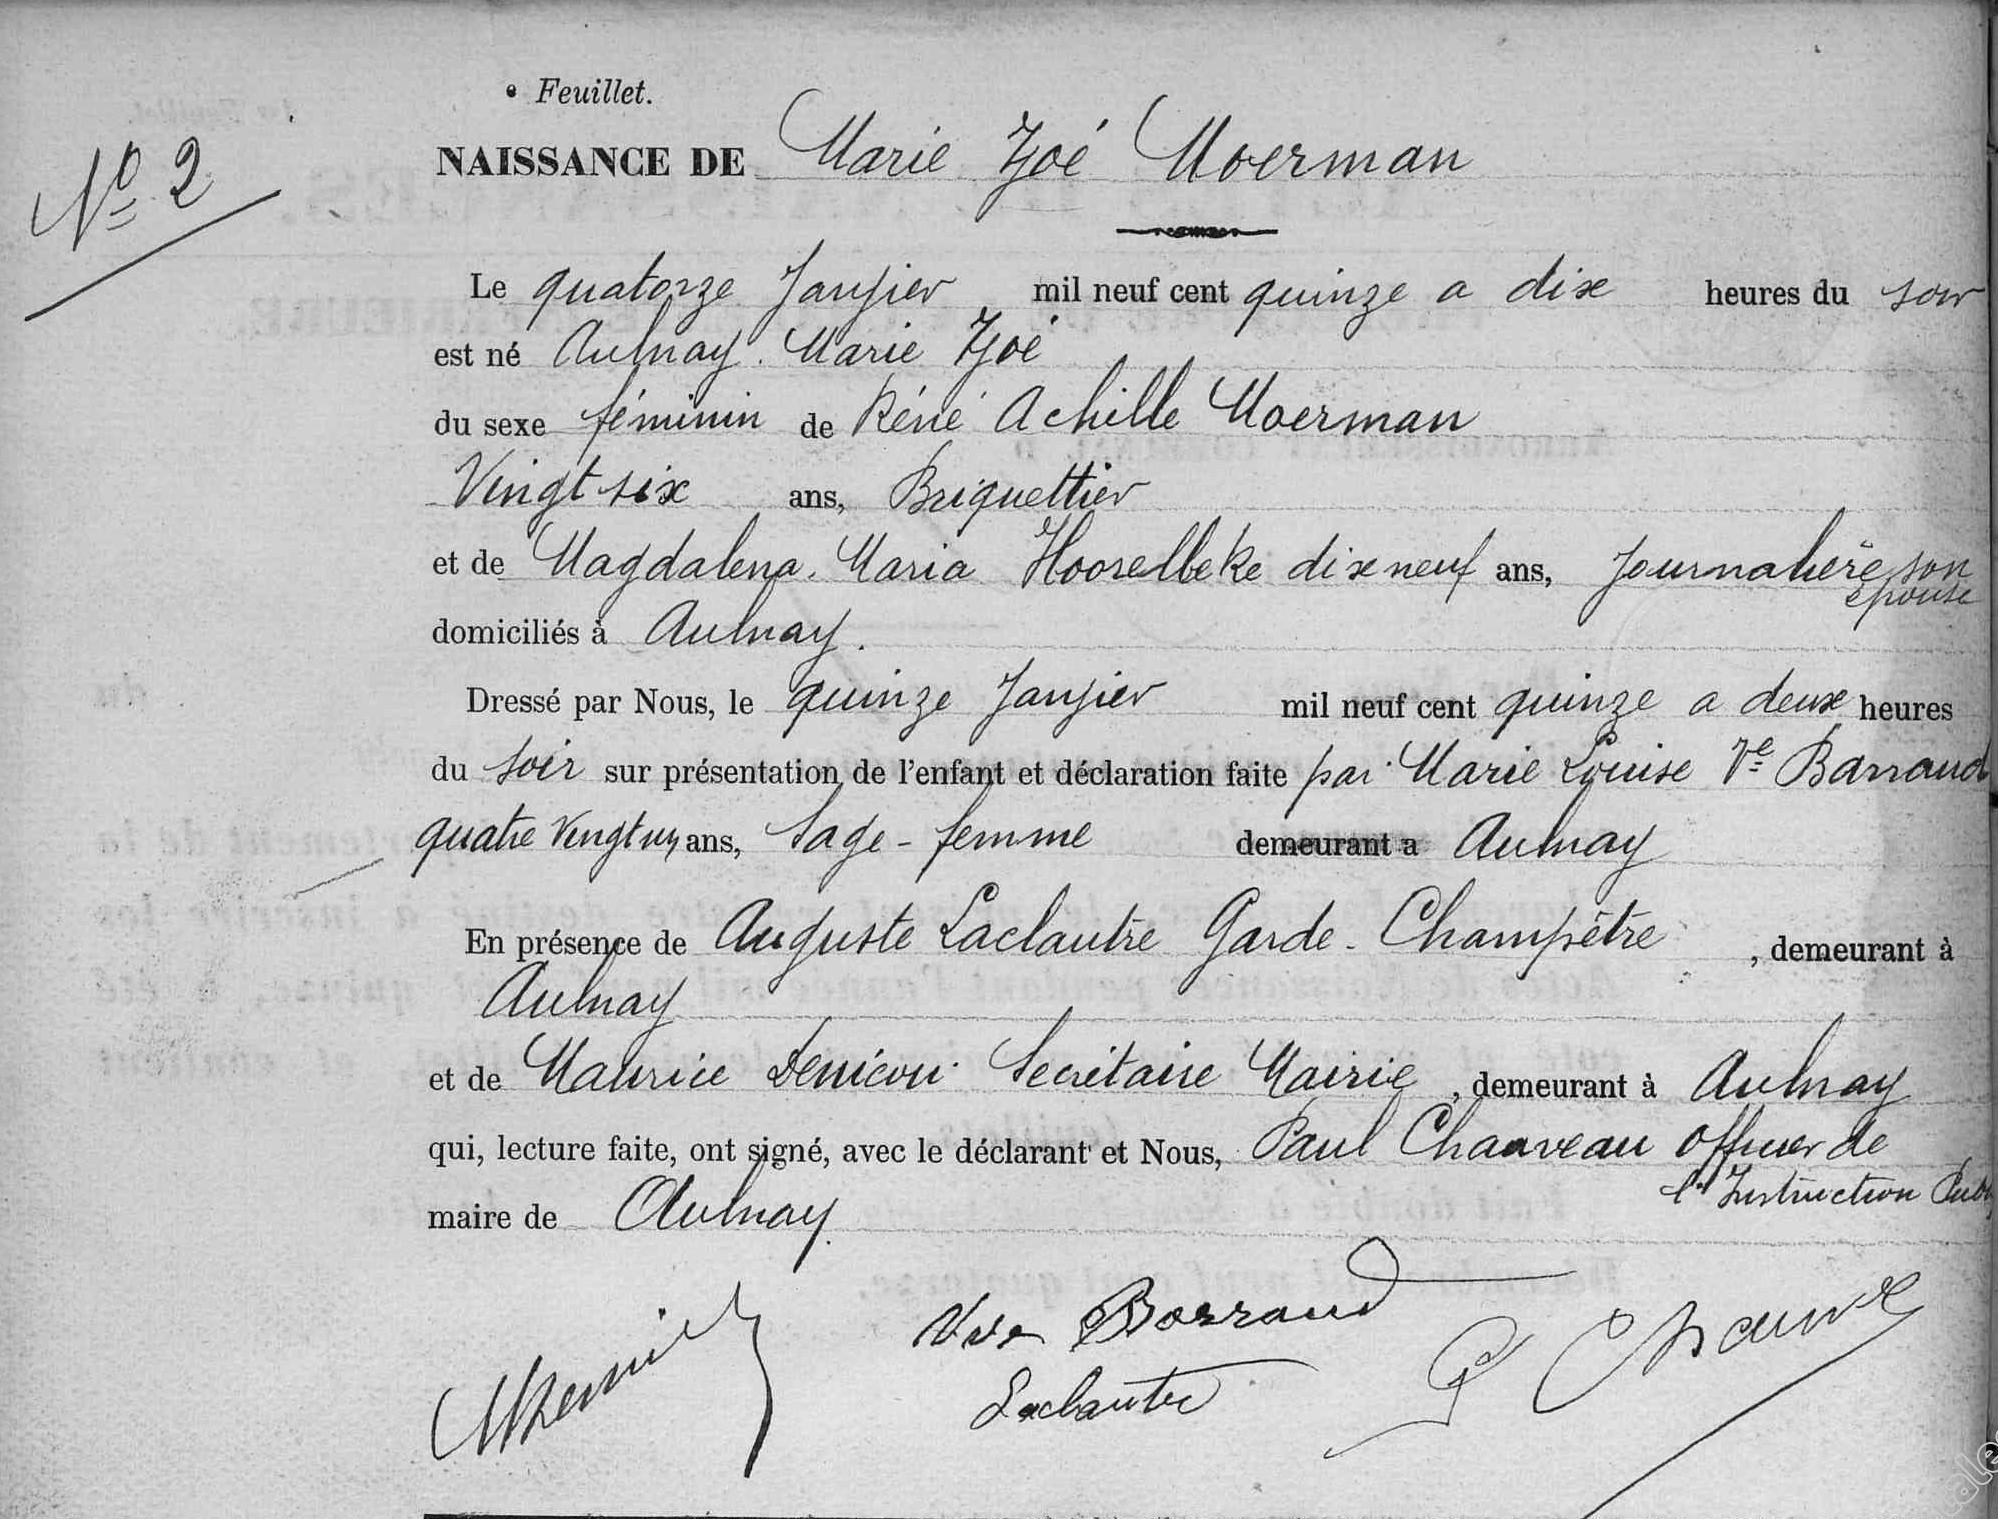 Feuillet.
Nº 2
NAISSANCE DE Marie Zoé Moerman
Le quatorze Janvier mil neuf cent quinze a dix heures du soir
est né Aulnay. Marie Zoé
du sexe féminin de Réné Achille Moerman
Vingt six ans, Briquettier
et de Magdalena. Maria Hoorelbeke dix neuf ans, Journalière son
épouse
domiciliés à Aulnay.
Dressé par Nous, le quinze Janvier mil neuf cent quinze a deux heures
du soir sur présentation de l'enfant et déclaration faite par Marie Louise Ve Barraud
quatre Vingt un ans, Sage-femme demeurant a Aulnay
En présence de Auguste Laclautre Garde-Champêtre , demeurant à
Aulnay
et de Maurice Secrétaire Mairie , demeurant à Aulnay
qui, lecture faite, ont signé, avec le déclarant et Nous, Paul Chauveau officier de
l'Instruction Pub
maire de Aulnay.
Vve Barraud
P Chauve
Laclautre